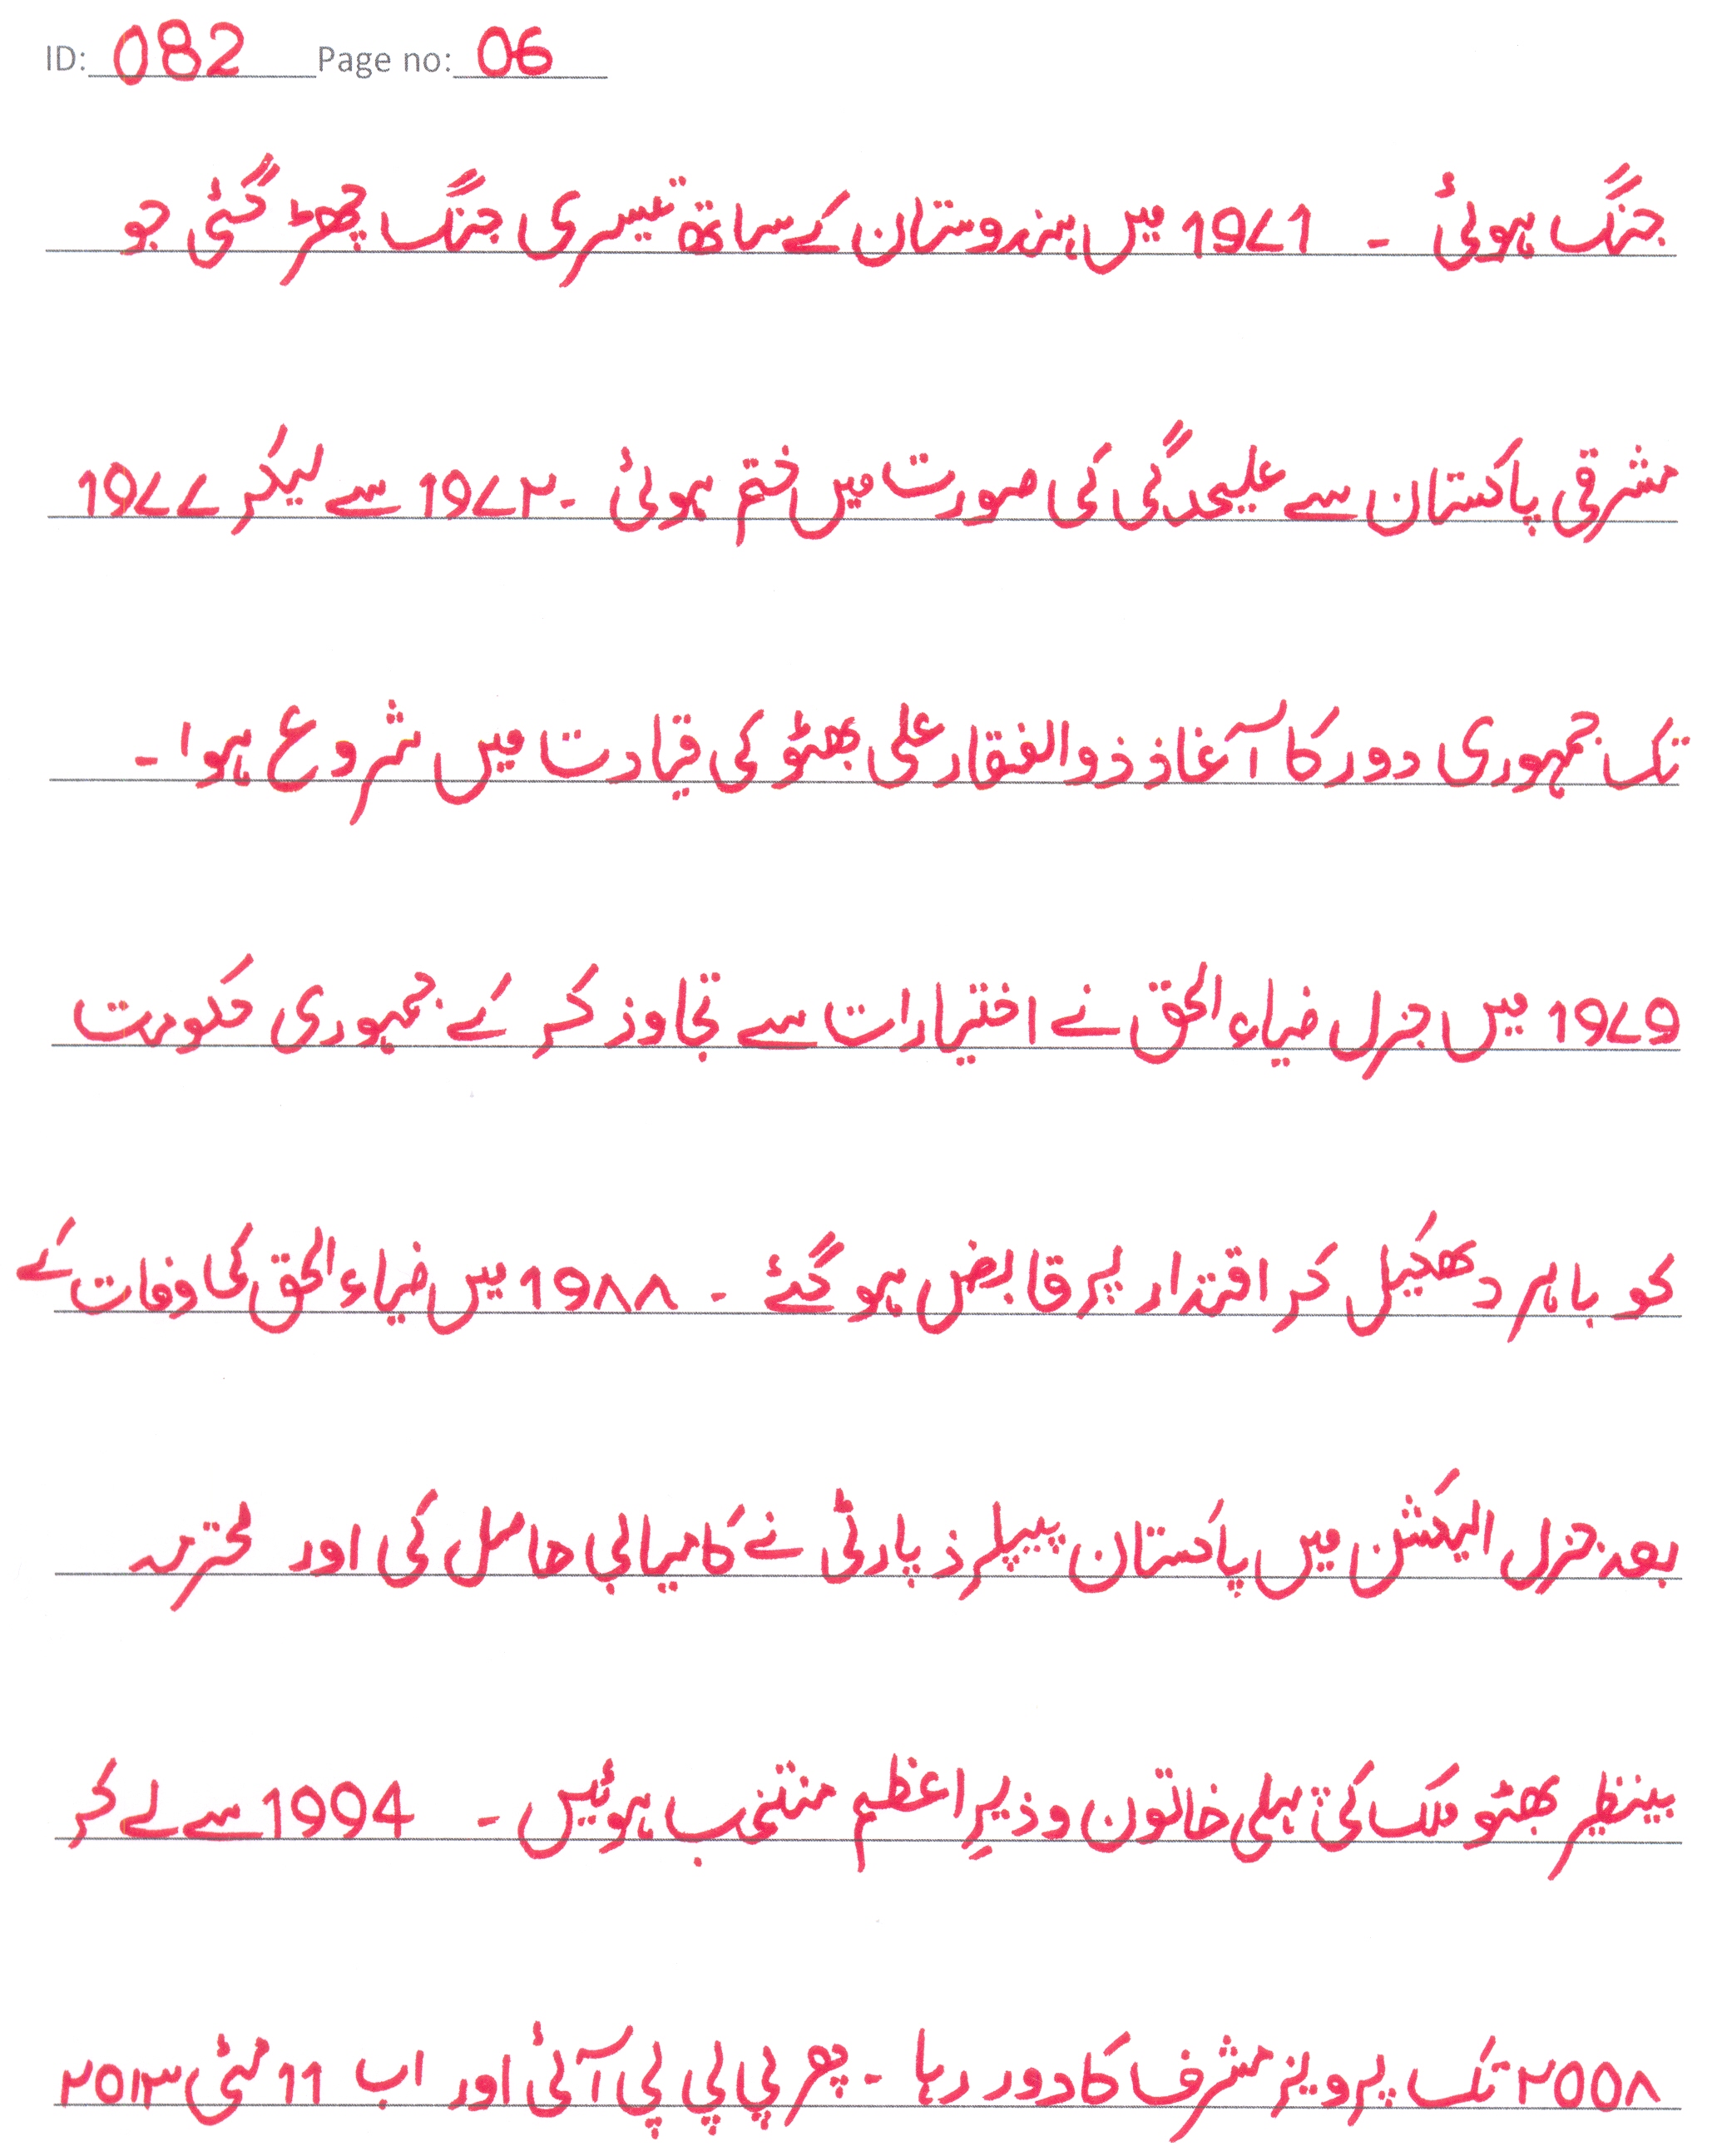 ID: 082 Page no: 06
جنگ ہوئی ۔ 1971 میں ہندوستان کے ساتھ تیسری جنگ چھڑ گئی جو
مشرقی پاکستان سے علیحدگی کی صورت میں ختم ہوئی ۔ 197۲ سے لیکر 1977
تک جمہوری دور کا آغاز ذوالفقار علی بھٹو کی قیادت میں شروع ہوا ۔
1979 میں جنرل ضیاء الحق نے اختیارات سے تجاوز کر کے جمہوری حکومت
کو باہر دھکیل کر اقتدار پر قابض ہو گئے ۔ 19۸۸ میں ضیاء الحق کی وفات کے
بعد جنرل الیکشن میں پاکستان پیپلرز پارٹی نے کامیابی حاصل کی اور محترمہ
بینظیر بھٹو ملک کی پہلی خاتون وزیرِاعظم منتخب ہوئیں ۔ 1994 سے لے کر
۲00۸ تک پرویز مشرف کا دور رہا ۔ پھر پی پی پی آئی اور اب 11 مئی ۲01۳